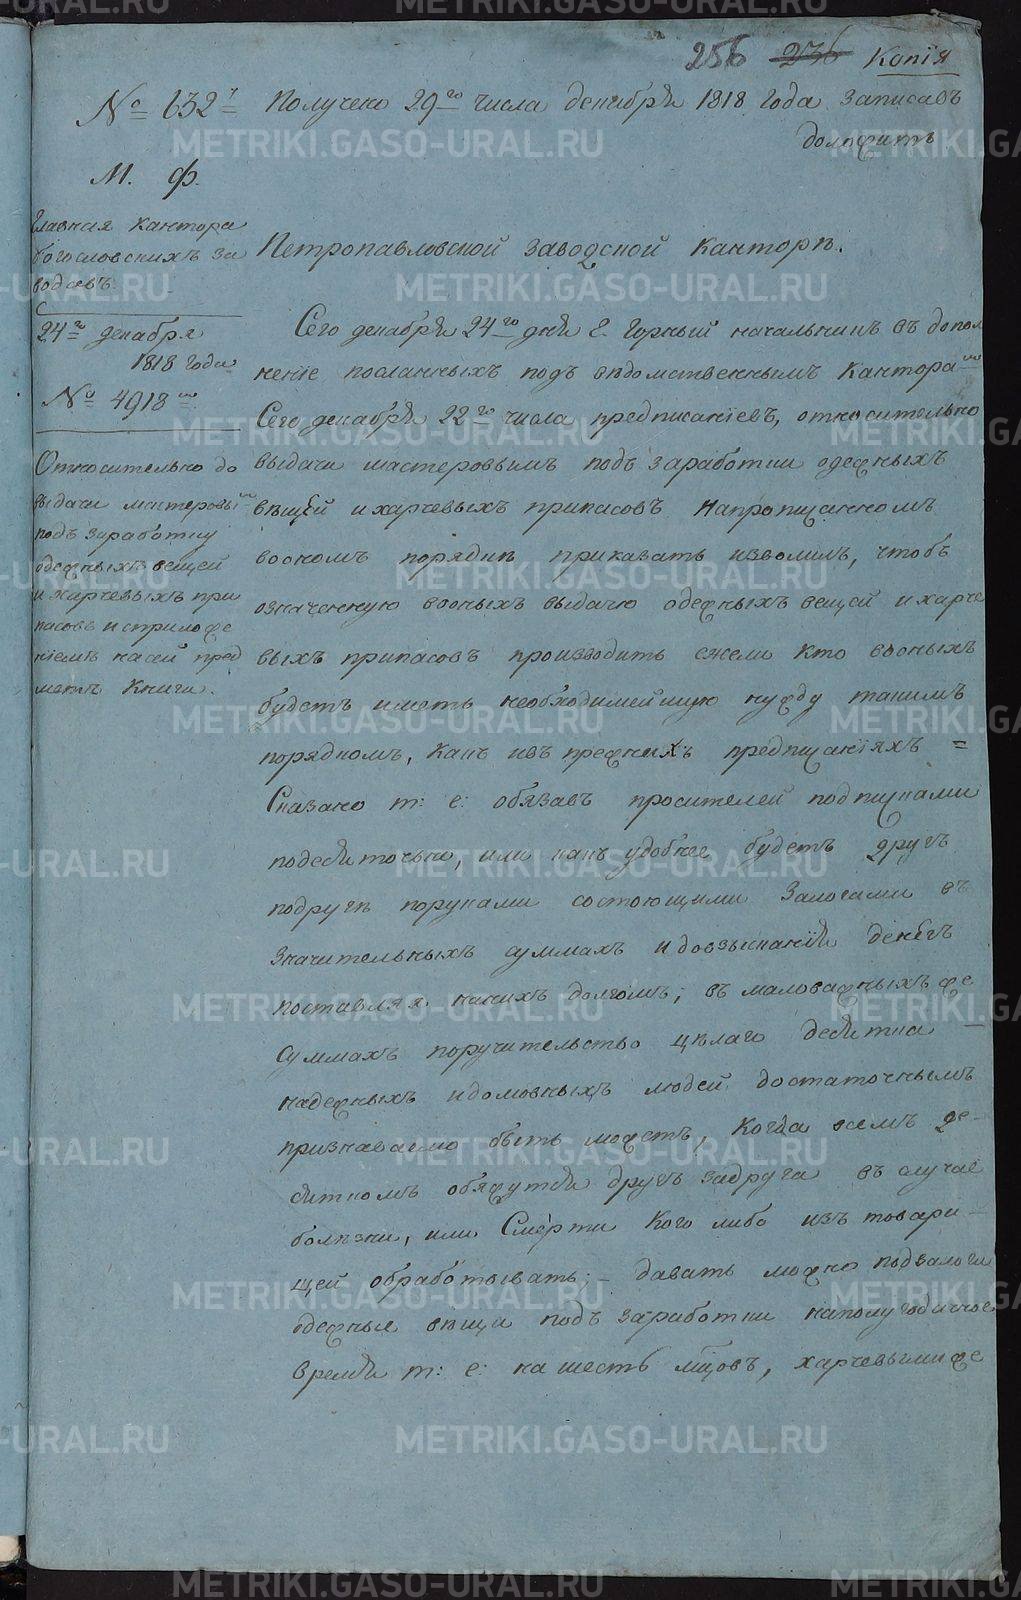 256 236 Копїя
№ 632 Получено 29го числа декабря 1818 года записавъ
доложить
М. Ф.
Главная кантора
богословскихъ за
водовъ
24го декабря
1818 года
№ 4918
Относительно до
выдачи мастеровы
подъ заработку
одежныхъ вещей
и харчевыхъ при
пасовъ и с приложе
нїемъ на сей пред
метъ книги.
Петропавловской заводской канторѣ.
Сего декабря 24го дня Г. Горный начальникъ въ допол
ненїе посланныхъ подъ вѣдомственнымъ канторамъ
Сего декабря 22го числа предписанїевъ, относительно
выдачи мастеровымъ подъ заработки одежныхъ
вѣщей и харчевыхъ припасовъ напропщанномъ
воономъ порядкѣ приказать изволилъ, чтобъ
означенную воныхъ выдачу одежныхъ вещей и харче
выхъ припасовъ производить ежели кто воныхъ
будетъ иметь необходимейшую нужду такимъ
порядкомъ, какъ ивъ прежнихъ предписанїяхъ =
Сказано т: е: обязавъ просителей подписками
подесяточно, или какъ удобнее будетъ другъ
подругѣ поруками состоющими залогами въ
значительныхъ суммахъ идовзысканїи денегъ
поставляя на нихъ долгомъ; въ маловажныхъ же
суммахъ поручительство целаго десятка —
надежныхъ идомовныхъ людей достаточнымъ
признаваемо быть можетъ, когда всемъ де-
сяткомъ обяжутся другъ задруга въ случае
болѣзни, или Смерти кого либо изъ товари-
щей обработывать; — давать можно подзалоги
одежные вѣщи подъ заработки наполугодичное
время т: е: на шесть мцовъ, харчевыми же
METRIKI.GASO-URAL.RU